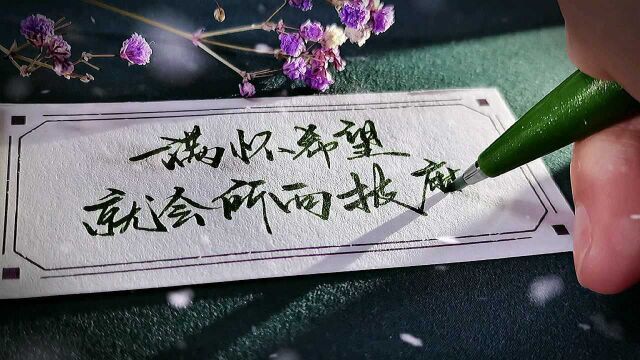 满怀希望
就会所向披